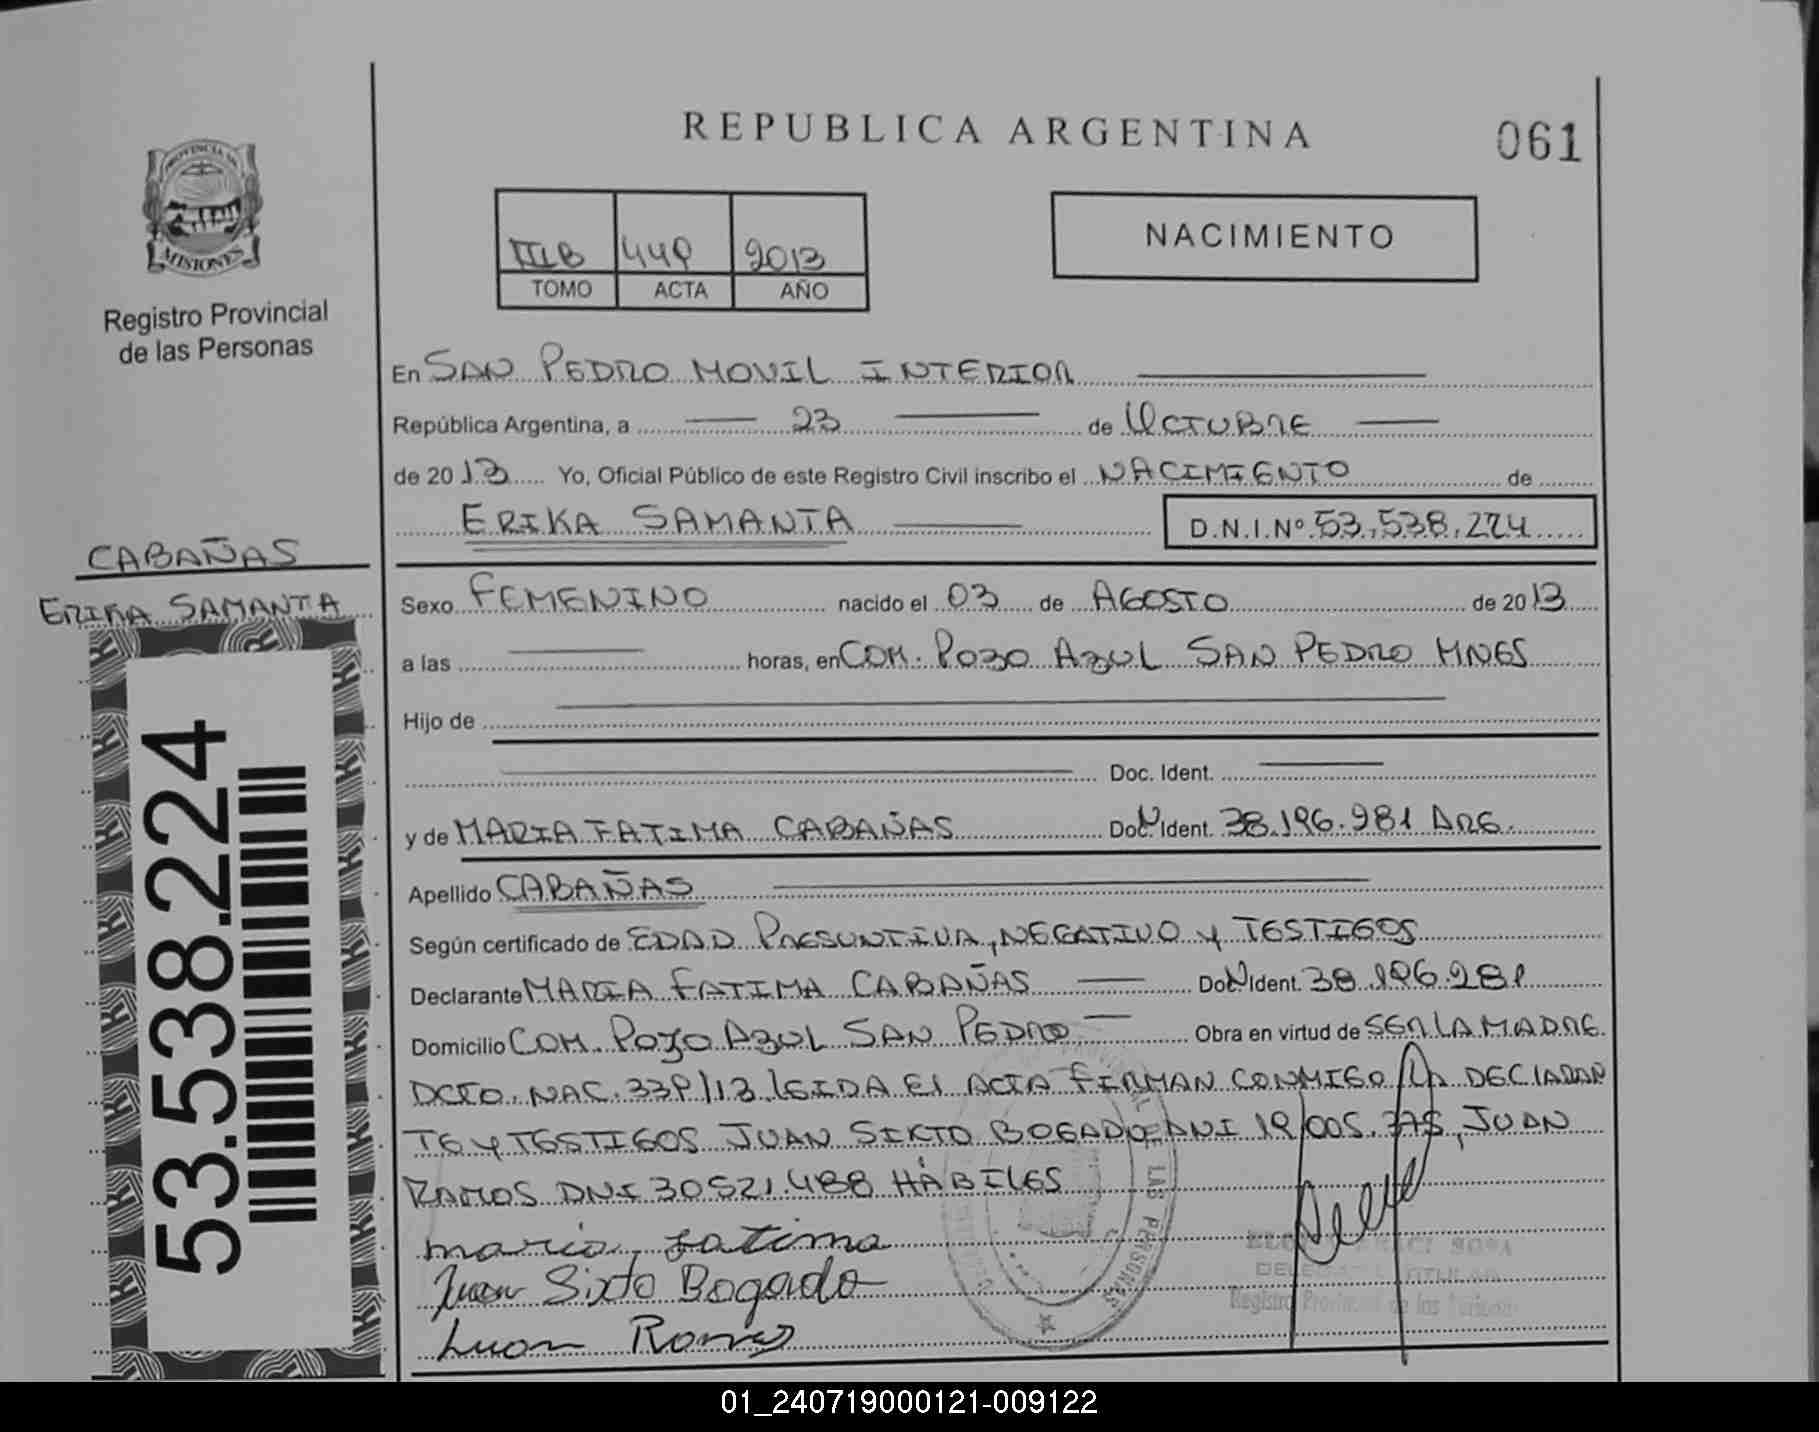 REPUBLICA ARGENTINA
061
PROVINCIA DE
MISIONES
Registro Provincial
de las Personas
IIIB 449 2013
TOMO ACTA AÑO
NACIMIENTO
En SAN PEDRO MOVIL INTERIOR
República Argentina, a 23 de OCTUBRE
de 2013 Yo, Oficial Público de este Registro Civil inscribo el NACIMIENTO de
ERIKA SAMANTA D.N.I.Nº 53.538.224
CABAÑAS
ERIKA SAMANTA
53.538.224
Sexo FEMENINO nacido el 03 de AGOSTO de 2013
a las horas, en COM. POZO AZUL SAN PEDRO MNES
Hijo de
Doc. Ident.
y de MARIA FATIMA CABAÑAS Doc. Ident. 38.196.981 ARG.
Apellido CABAÑAS
Según certificado de EDAD PRESUNTIVA, NEGATIVO Y TESTIGOS
Declarante MARIA FATIMA CABAÑAS Doc. Ident. 38.196.981
Domicilio COM. POZO AZUL SAN PEDRO Obra en virtud de SER LA MADRE.
DCTO. NAC. 339/13 LEIDA EL ACTA FIRMAN CONMIGO LA DECLARAN
TE Y TESTIGOS JUAN SIXTO BOGADO DNI 19.005.775, JUAN
RAMOS DNI 30521.488 HÁBILES
maria fatima
Juan Sixto Bogado
Juan Ramos
DE LAS PERSONAS
SOSA
Registro Provincial de las Personas
01_240719000121-009122